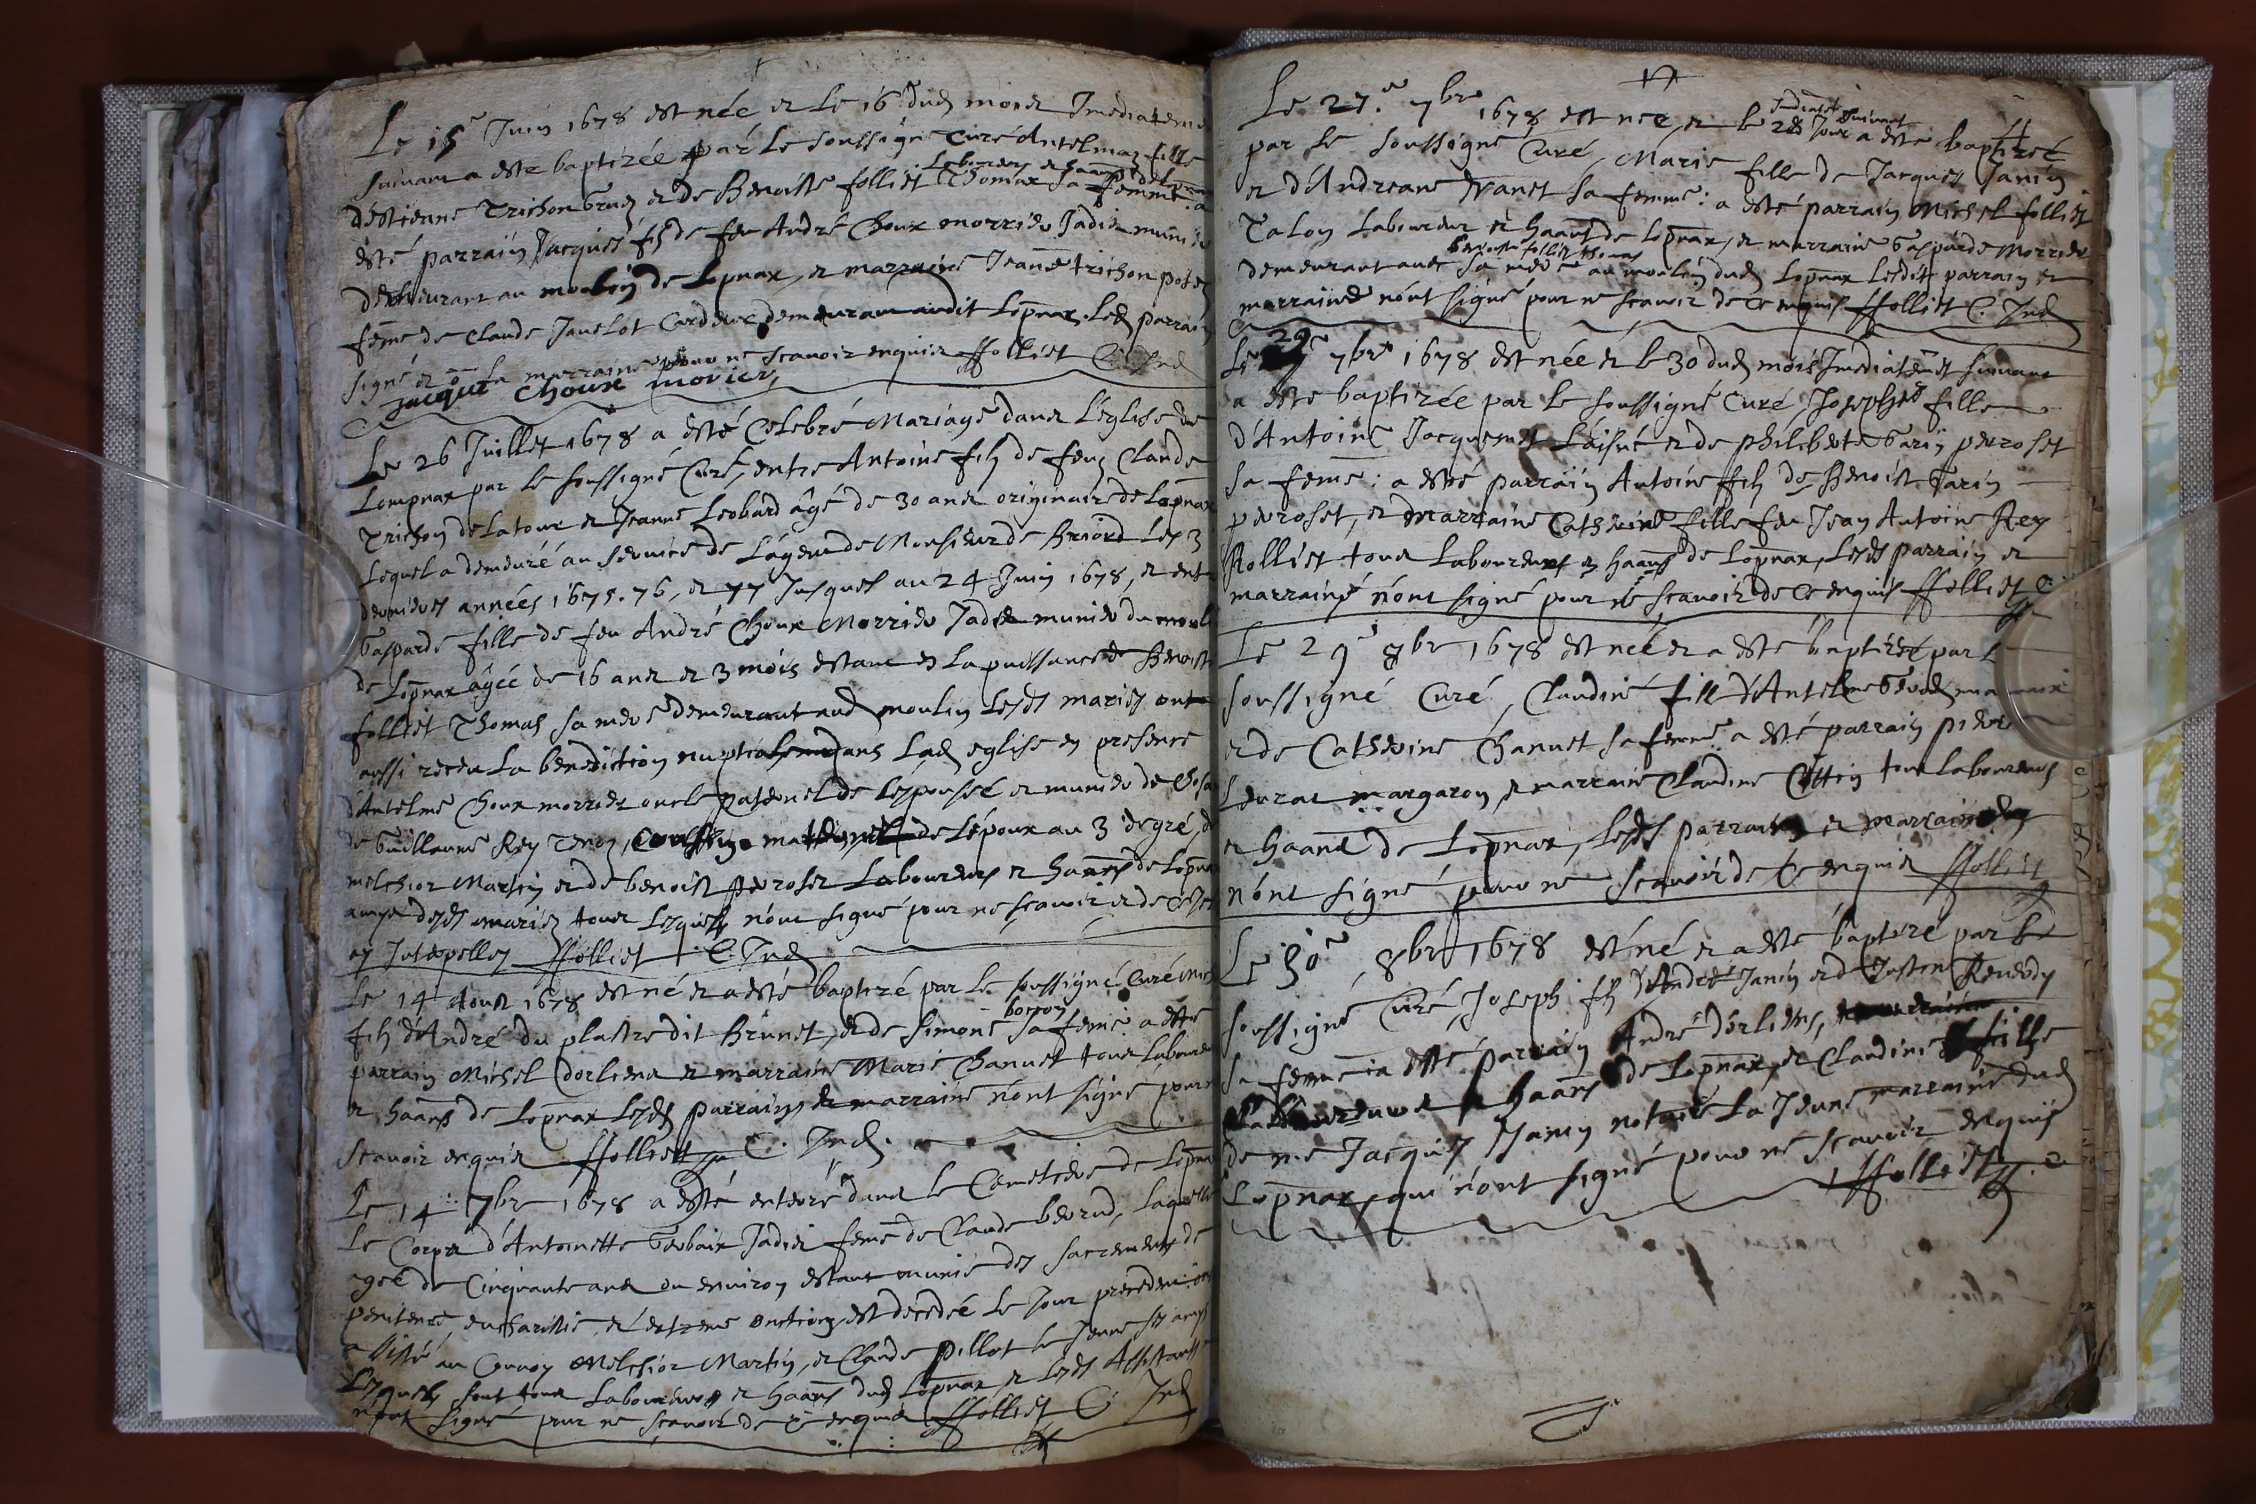 Le 15e Juin 1678 est née, et le 16 dud mois Imediateme
suivant a esté baptizée par le soussigné Curé Antelmaz fille
d'Estienne Trichon et de Benoiste folliet Thomaz sa femme: a
Laboureurs et haans de Lopnax
esté parrain Jacques fils de feu André Choux morrier Jadis munier
demeurant au moulin de Lopnax, et marraine Jeanne trichon
feme de Claude Janelot Cardeur demeurant audit Lopnax. Led parrain
signé et non la marraine pour ne scavoir enquis ffolliet C. Ind
jacque Choux morier
Le 26 Juillet 1678 a esté Celebré Mariage dans l'église de
Lompnax par le soussigné Curé, entre Antoine fils de feuz Claude
Trichon de La tour et Jeanne Leobard âgé de 30 ans originaire de Lopnax
Lequel a demeuré au service de Monsieur de Briord Les 3
dernieres années 1675. 76, et 77 Jusques au 24 Juin 1678, et entre
Gasparde fille de feu André Choux Morrier Jadis munier du moul
de Lopnax âgée de 16 ans et 3 mois estant en la puissance de Benoiste
folliet Thomas sa mere demeurant aud moulin Lesds mariez ont
aussi receu La benediction nuptiale dans Lad eglise en presence
d'Antelme Choux morrier oncle paternel de L'epousée et munier de
de Guillaume Rey, maternel de L'époux au 3 degré, d
melchior Martin et de benoist perroset Laboureurs et haans de Lopnax
amys desds mariez tous Lesquels n'ont signé pour ne scavoir et de ce
ay Interpellez ffolliet C. Ind
Le 14 Aoust 1678 est né et a esté baptizé par le soussigné Curé
fils d'André du plastre dit Brunet, et de Simone borron sa feme a esté
parrain Michel Dorliens et marraine Marie Chanuet tous Laboureurs
et haans de Lopnax Lesds parrain et marraine n'ont signé pour
scavoir enquis ffolliet C. Ind.
Le 14e 7bre 1678 a esté enterré dans le Cemetiere de Lopnax
Le Corps d'Antoinette Gerbaix Jadis feme de Claude, Laquelle
agée de Cinquante ans ou environ estant munie des sacrements de
penitence, eucharistie, et extreme onction, est decedée Le Jour precedent
assisté au Convoy Melchior Martin, et Claude Pillot le Jeune ses amys
Lesquels sont tous Laboureurs et haans dud Lopnax et Lesds Assistants
n'ont signé pour ne scavoir de ce enquis ffolliet C. Ind
Le 27e 7bre 1678 est née, et le 28 Jour Imediatet suivant a esté baptizée
par le soussigné Curé, Marie fille de Jacques Janin
et d'Andreane sa femme: a esté parrain Michel folliet
Talon Laboureur et haans de Lopnax, et marraine Gasparde Morrier
demeurant avec benoiste folliet thomas sa mere au moulin dud Lopnax Lesdits parrain et
marraine n'ont signé pour ne scavoir de ce enquis ffolliet C. Ind
Le 29e 7bre 1678 est née et le 30 dud mois Imediatemet suivant
a esté baptizée par le soussigné Curé Josephte fille
d'Antoine Jacquemet L'aisné et de philiberte Garin perroset
sa feme: a esté parrain Antoine fils de Benoist Garin
perroset, et marraine Catherine fille feu Jean Antoine Rey
Rolliet tous Laboureurs et haans de Lopnax, Lesds parrain et
marraine n'ont signé pour ne scavoir de ce enquis ffolliet C.
Le 29e 8bre 1678 est née et a esté baptizée par L
soussigné Curé, Claudine fille d'Antelme
et de Catherine Chanuet sa femme a esté parrain pierre
Leurat margaron, et marraine Claudine Cottin tous Laboureurs
et haans de Lopnax, Lesds parrain et marraine
n'ont signé pour ne scavoir de Ce enquis ffolliet
Le 30e 8bre 1678 est né et a esté baptizé par le
soussigné Curé, Joseph fils d'André Janin et de
sa femme: a esté parrain André d'orliens,
Laboureurs et haans de Lopnax, et Claudine fille
de me Jacques Janin notaire La Jeune marraine dud
Lopnax, qui n'ont signé pour ne scavoir enquis
ffolliet C.